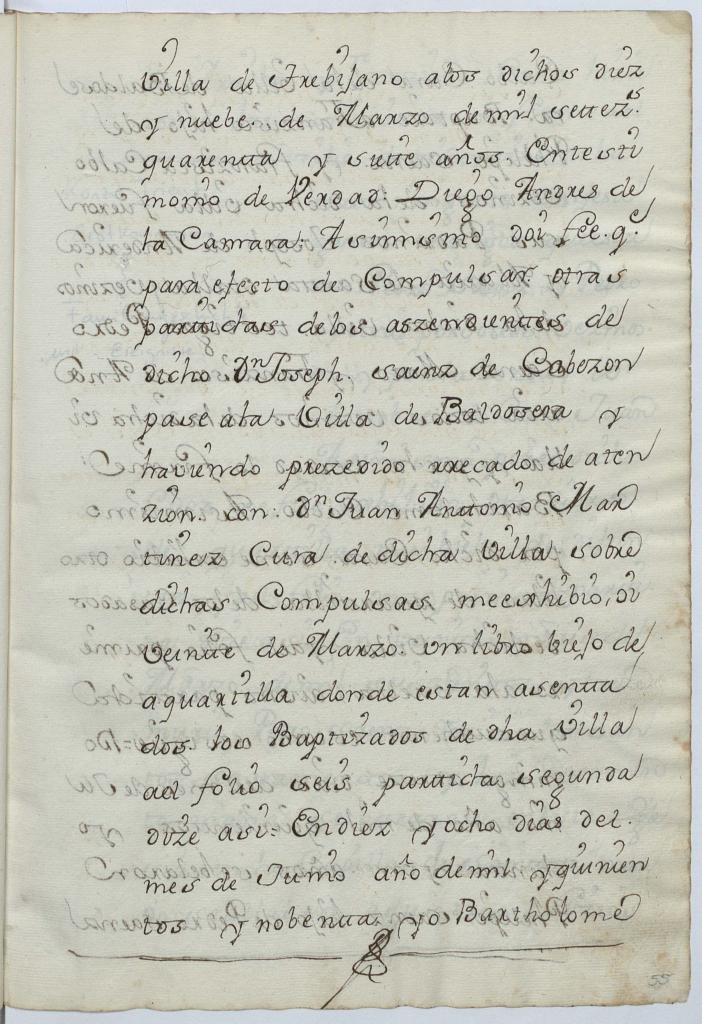 Villa de Trebijano alos dichos diez
y nuebe. de Marzo de mil settez.s
quarentta y siette años. Entesti
monio de Verdad: Diego Andres de
la Camara: Asimismo doi fee. q.e
para efecto de Compulsar. otras
parttidas delos aszendienttes de
dicho Dn Joseph. saenz de Cabezon
pase ala Villa de Baldosera y
haviendo prezedido rrecado de aten
zion. con: Dn Juan Anttonio Mar
tinez Cura. de dicha Villa sobre
dichas Compulsas meexhibio, oi
veintte de Marzo. un libro biejo de
aquartilla donde estan asentta
dos. los Baptizados de dha Villa
ael folio seis parttida segunda
dize asi: Endiez yocho dias del.
mes de Junio año demil. yquinien
tos y nobentta. yo Bartholome
55